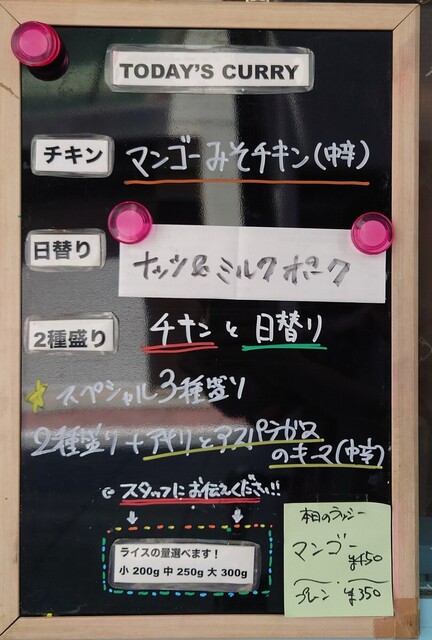 TODAY'S CURRY
チキン マンゴーみそチキン(中辛)
日替り ナッツ&ミルクポーク
2種盛り チキンと日替り
スペシャル3種盛り
2種盛り+アサリとアスパラガス
のキーマ(中辛)
スタッフにお伝えください!!
ライスの量選べます!
小 200g 中 250g 大 300g
本日のラッシー
マンゴー ¥450
プレーン ¥350